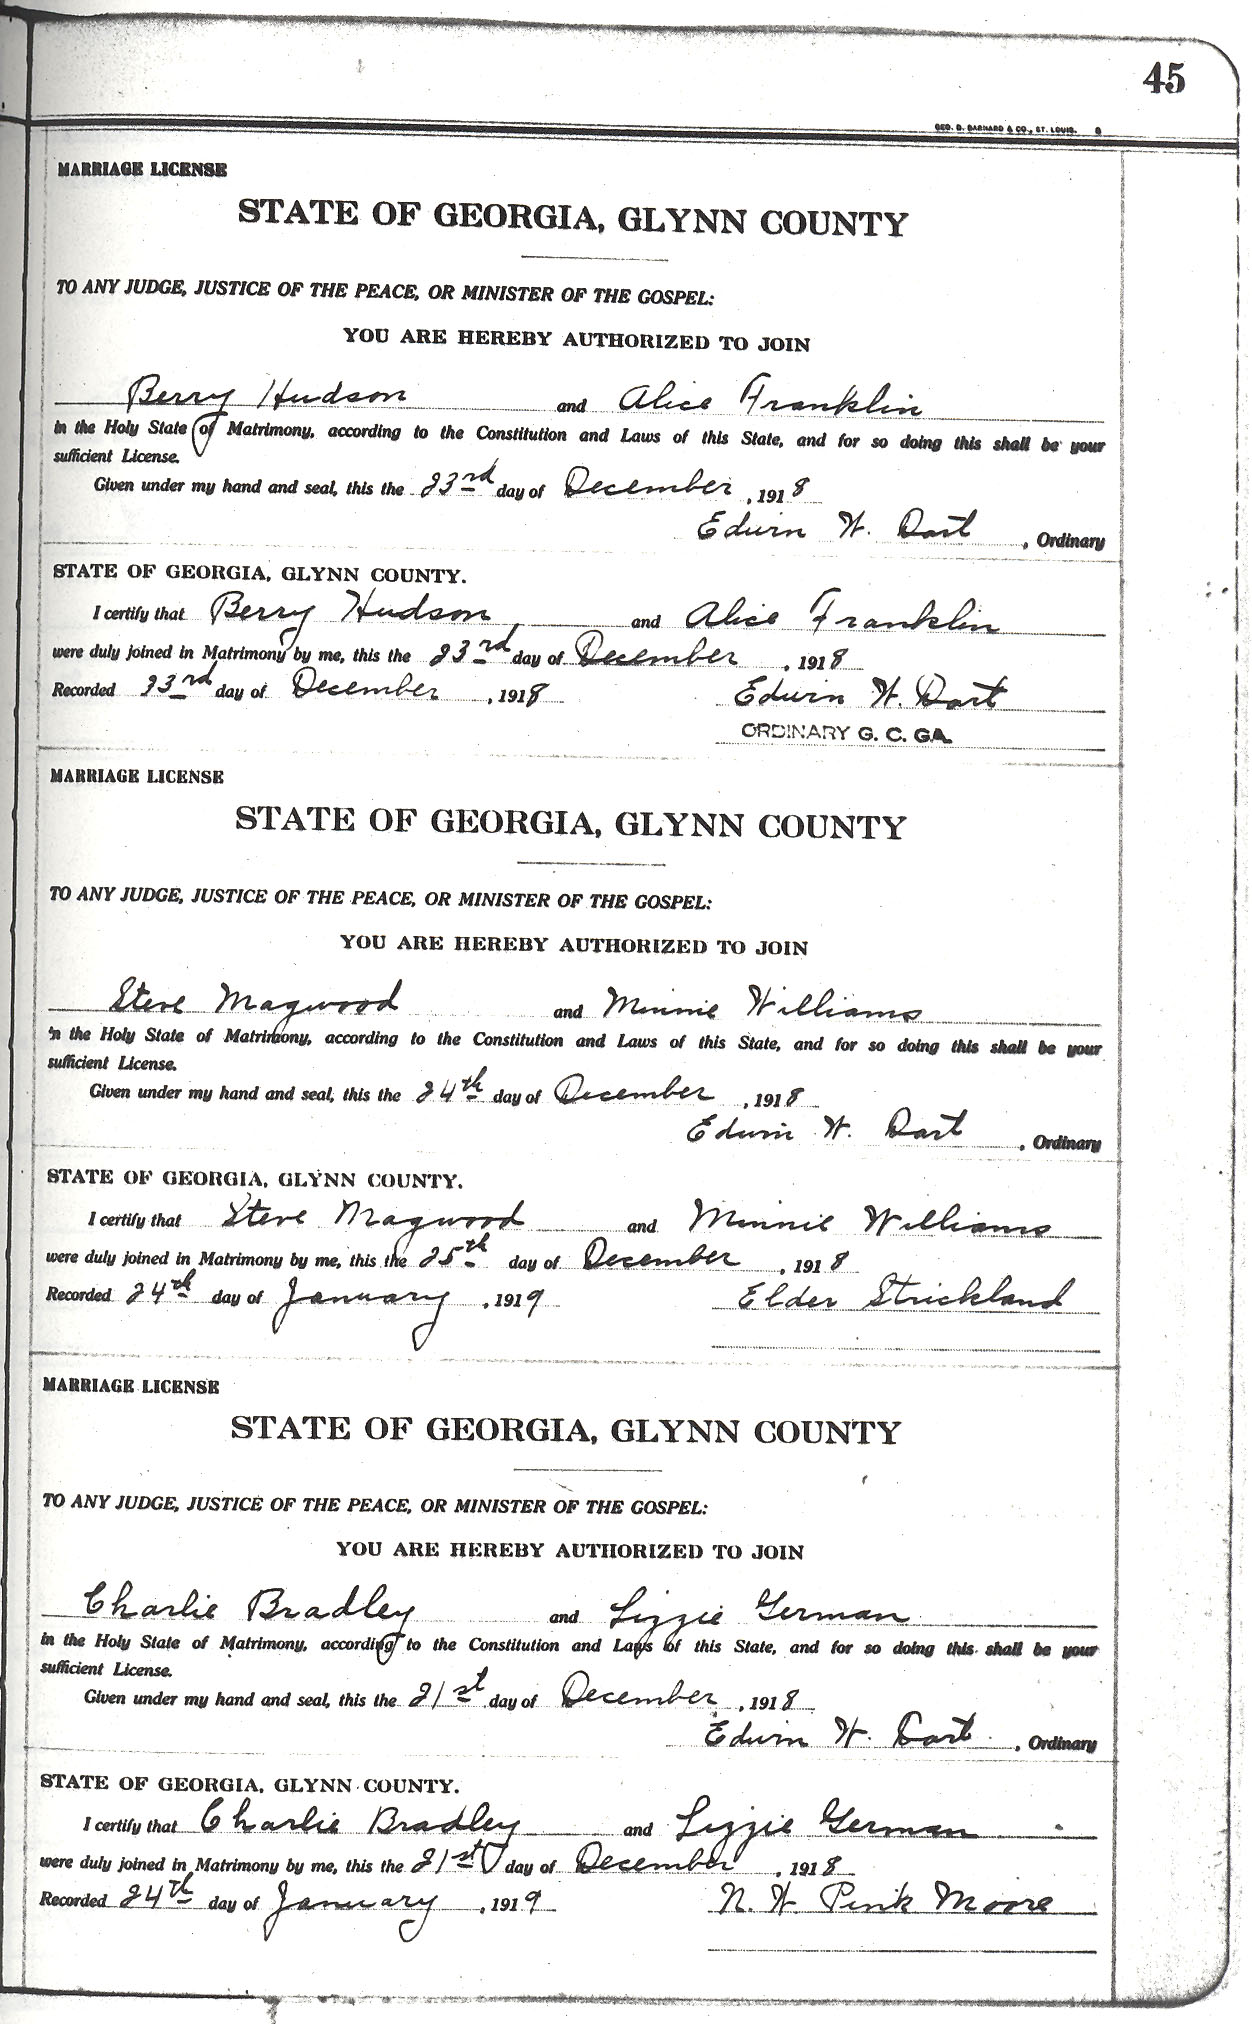 45
GEO. D. BARNARD & CO., ST. LOUIS. 8
MARRIAGE LICENSE
STATE OF GEORGIA, GLYNN COUNTY
TO ANY JUDGE, JUSTICE OF THE PEACE, OR MINISTER OF THE GOSPEL:
YOU ARE HEREBY AUTHORIZED TO JOIN
Berry Hudson and Alice Franklin
in the Holy State of Matrimony, according to the Constitution and Laws of this State, and for so doing this shall be your
sufficient License.
Given under my hand and seal, this the 23rd day of December, 1918
Edwin W. Dart, Ordinary
STATE OF GEORGIA, GLYNN COUNTY.
I certify that Berry Hudson and Alice Franklin
were duly joined in Matrimony by me, this the 23rd day of December, 1918
Recorded 23rd day of December, 1918 Edwin W. Dart
ORDINARY G. C. GA.
MARRIAGE LICENSE
STATE OF GEORGIA, GLYNN COUNTY
TO ANY JUDGE, JUSTICE OF THE PEACE, OR MINISTER OF THE GOSPEL:
YOU ARE HEREBY AUTHORIZED TO JOIN
Steve Magwood and Minnie Williams
in the Holy State of Matrimony, according to the Constitution and Laws of this State, and for so doing this shall be your
sufficient License.
Given under my hand and seal, this the 24th day of December, 1918
Edwin W. Dart, Ordinary
STATE OF GEORGIA, GLYNN COUNTY.
I certify that Steve Magwood and Minnie Williams
were duly joined in Matrimony by me, this the 25th day of December, 1918
Recorded 24th day of January, 1919 Elder Strickland
MARRIAGE LICENSE
STATE OF GEORGIA, GLYNN COUNTY
TO ANY JUDGE, JUSTICE OF THE PEACE, OR MINISTER OF THE GOSPEL:
YOU ARE HEREBY AUTHORIZED TO JOIN
Charlie Bradley and Lizzie German
in the Holy State of Matrimony, according to the Constitution and Laws of this State, and for so doing this shall be your
sufficient License.
Given under my hand and seal, this the 21st day of December, 1918
Edwin W. Dart, Ordinary
STATE OF GEORGIA, GLYNN COUNTY.
I certify that Charlie Bradley and Lizzie German
were duly joined in Matrimony by me, this the 21st day of December, 1918
Recorded 24th day of January, 1919 N. W. Pink Moore